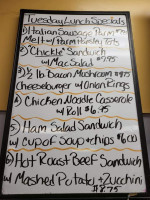 Tuesday Lunch Specials
1) Italian Sausage Parm
Melt w/ Parm
2) "Chickie" Sandwich
w/ Mac Salad $7.95
3) ½ lb Bacon Mushroom $8.75
Cheeseburger w/ Onion Rings
4) Chicken Noodle Casserole
w/ Roll $6.95
5) Ham Salad Sandwich
w/ Cup of Soup + Chips $6.00
6) Hot Roast Beef Sandwich
w/ Mashed Potato + Zucchini
$8.75